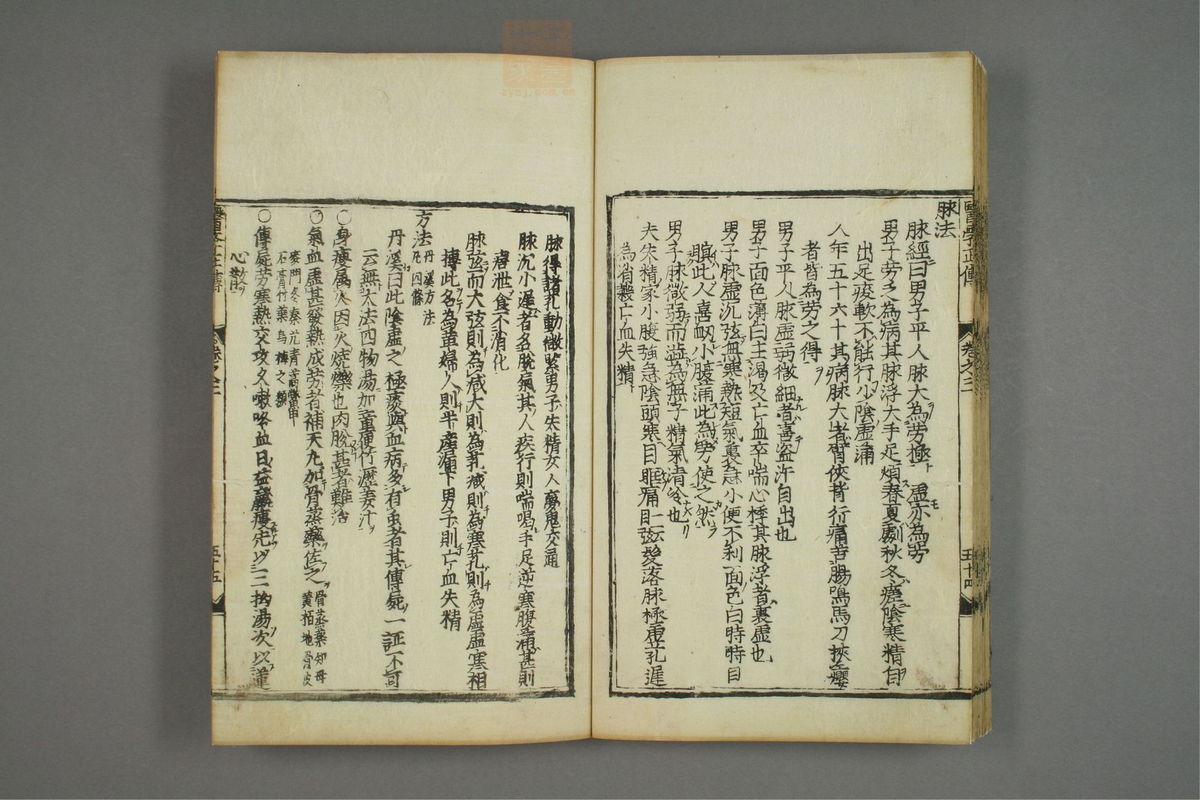 醫學正傳 卷之三 五十四
脉法
脉經曰男子平人脉大為勞極虛亦為勞
男子勞之為病其脉浮大手足煩春夏劇秋冬瘥陰寒精自
出足痠軟不能行少陰虛滿
人年五十六十其病脉大者痺俠背行痛苦腸鳴馬刀挾癭
者皆為勞之得
男子平人脉虛弱微細者喜盗汗自出也
男子面色薄白主渴及亡血卒喘心悸其脉浮者裏虛也
男子脉虛沉弦無寒熱短氣裏急小便不利面色白時時目
瞑此人喜衂小腹滿此為勞使之然
男子脉微弱而澁為無子精氣清冷也
夫失精家小腹強急陰頭寒目眶痛目弦髮落脉極虛芤遲
為清穀亡血失精
脉得諸芤動微緊男子失精女人夢鬼交通
脉沉小遲者名脫氣其人疾行則喘喝手足逆寒腹滿甚則
溏泄食不消化
脉弦而大弦則為减大則為芤减則為寒芤則為虛虛寒相
摶此名為革婦人則半產漏下男子則亡血失精
方法 丹溪方法凡四條
丹溪曰此陰虛之極痰與血病多有虫者其傳屍一証不可
云無大法四物湯加童便竹瀝姜汁
○身瘦属火因火燒爍也肉脫甚者難治
○氣血虛甚發熱成勞者補天丸加骨蒸藥佐之 骨蒸藥知母黃栢地骨皮
麥門冬秦艽青蒿鱉甲石膏竹葉烏梅之類
○傳屍勞寒熱交攻久嗽咯血日益羸瘦先以三拗湯次以蓮
心散
醫學正傳 卷之三 五十五